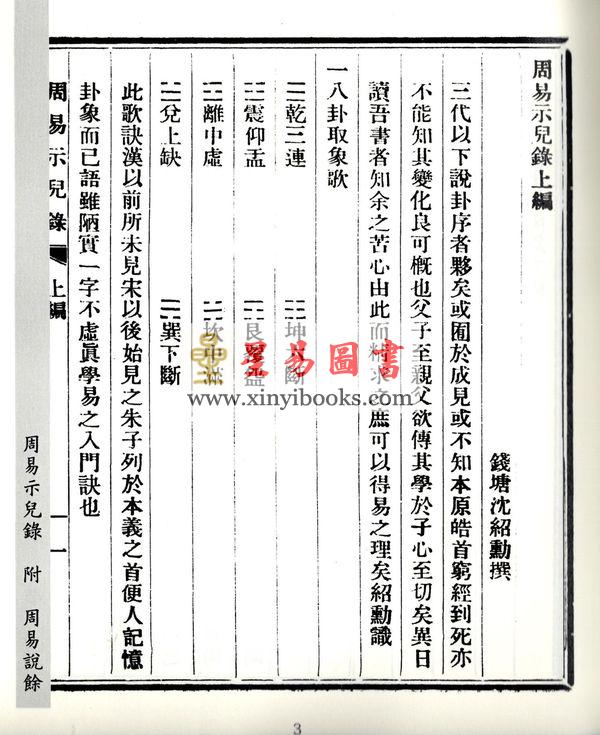 周易示兒錄上編
錢塘沈紹勳撰
三代以下說卦序者夥矣或囿於成見或不知本原皓首窮經到死亦
不能知其變化良可概也父子至親父欲傳其學於子心至切矣異日
讀吾書者知余之苦心由此而精求之庶可以得易之理矣紹勳識
一八卦取象歌
☰乾三連 ☷坤六斷
☳震仰盂 ☶艮覆盌
☲離中虛 ☵坎中滿
☱兌上缺 ☴巽下斷
此歌訣漢以前所未見宋以後始見之朱子列於本義之首便人記憶
卦象而已語雖陋實一字不虛眞學易之入門訣也
周易示兒錄 上編 一
周易示兒錄 附 周易說餘
星易圖書
www.xinyibooks.com
3